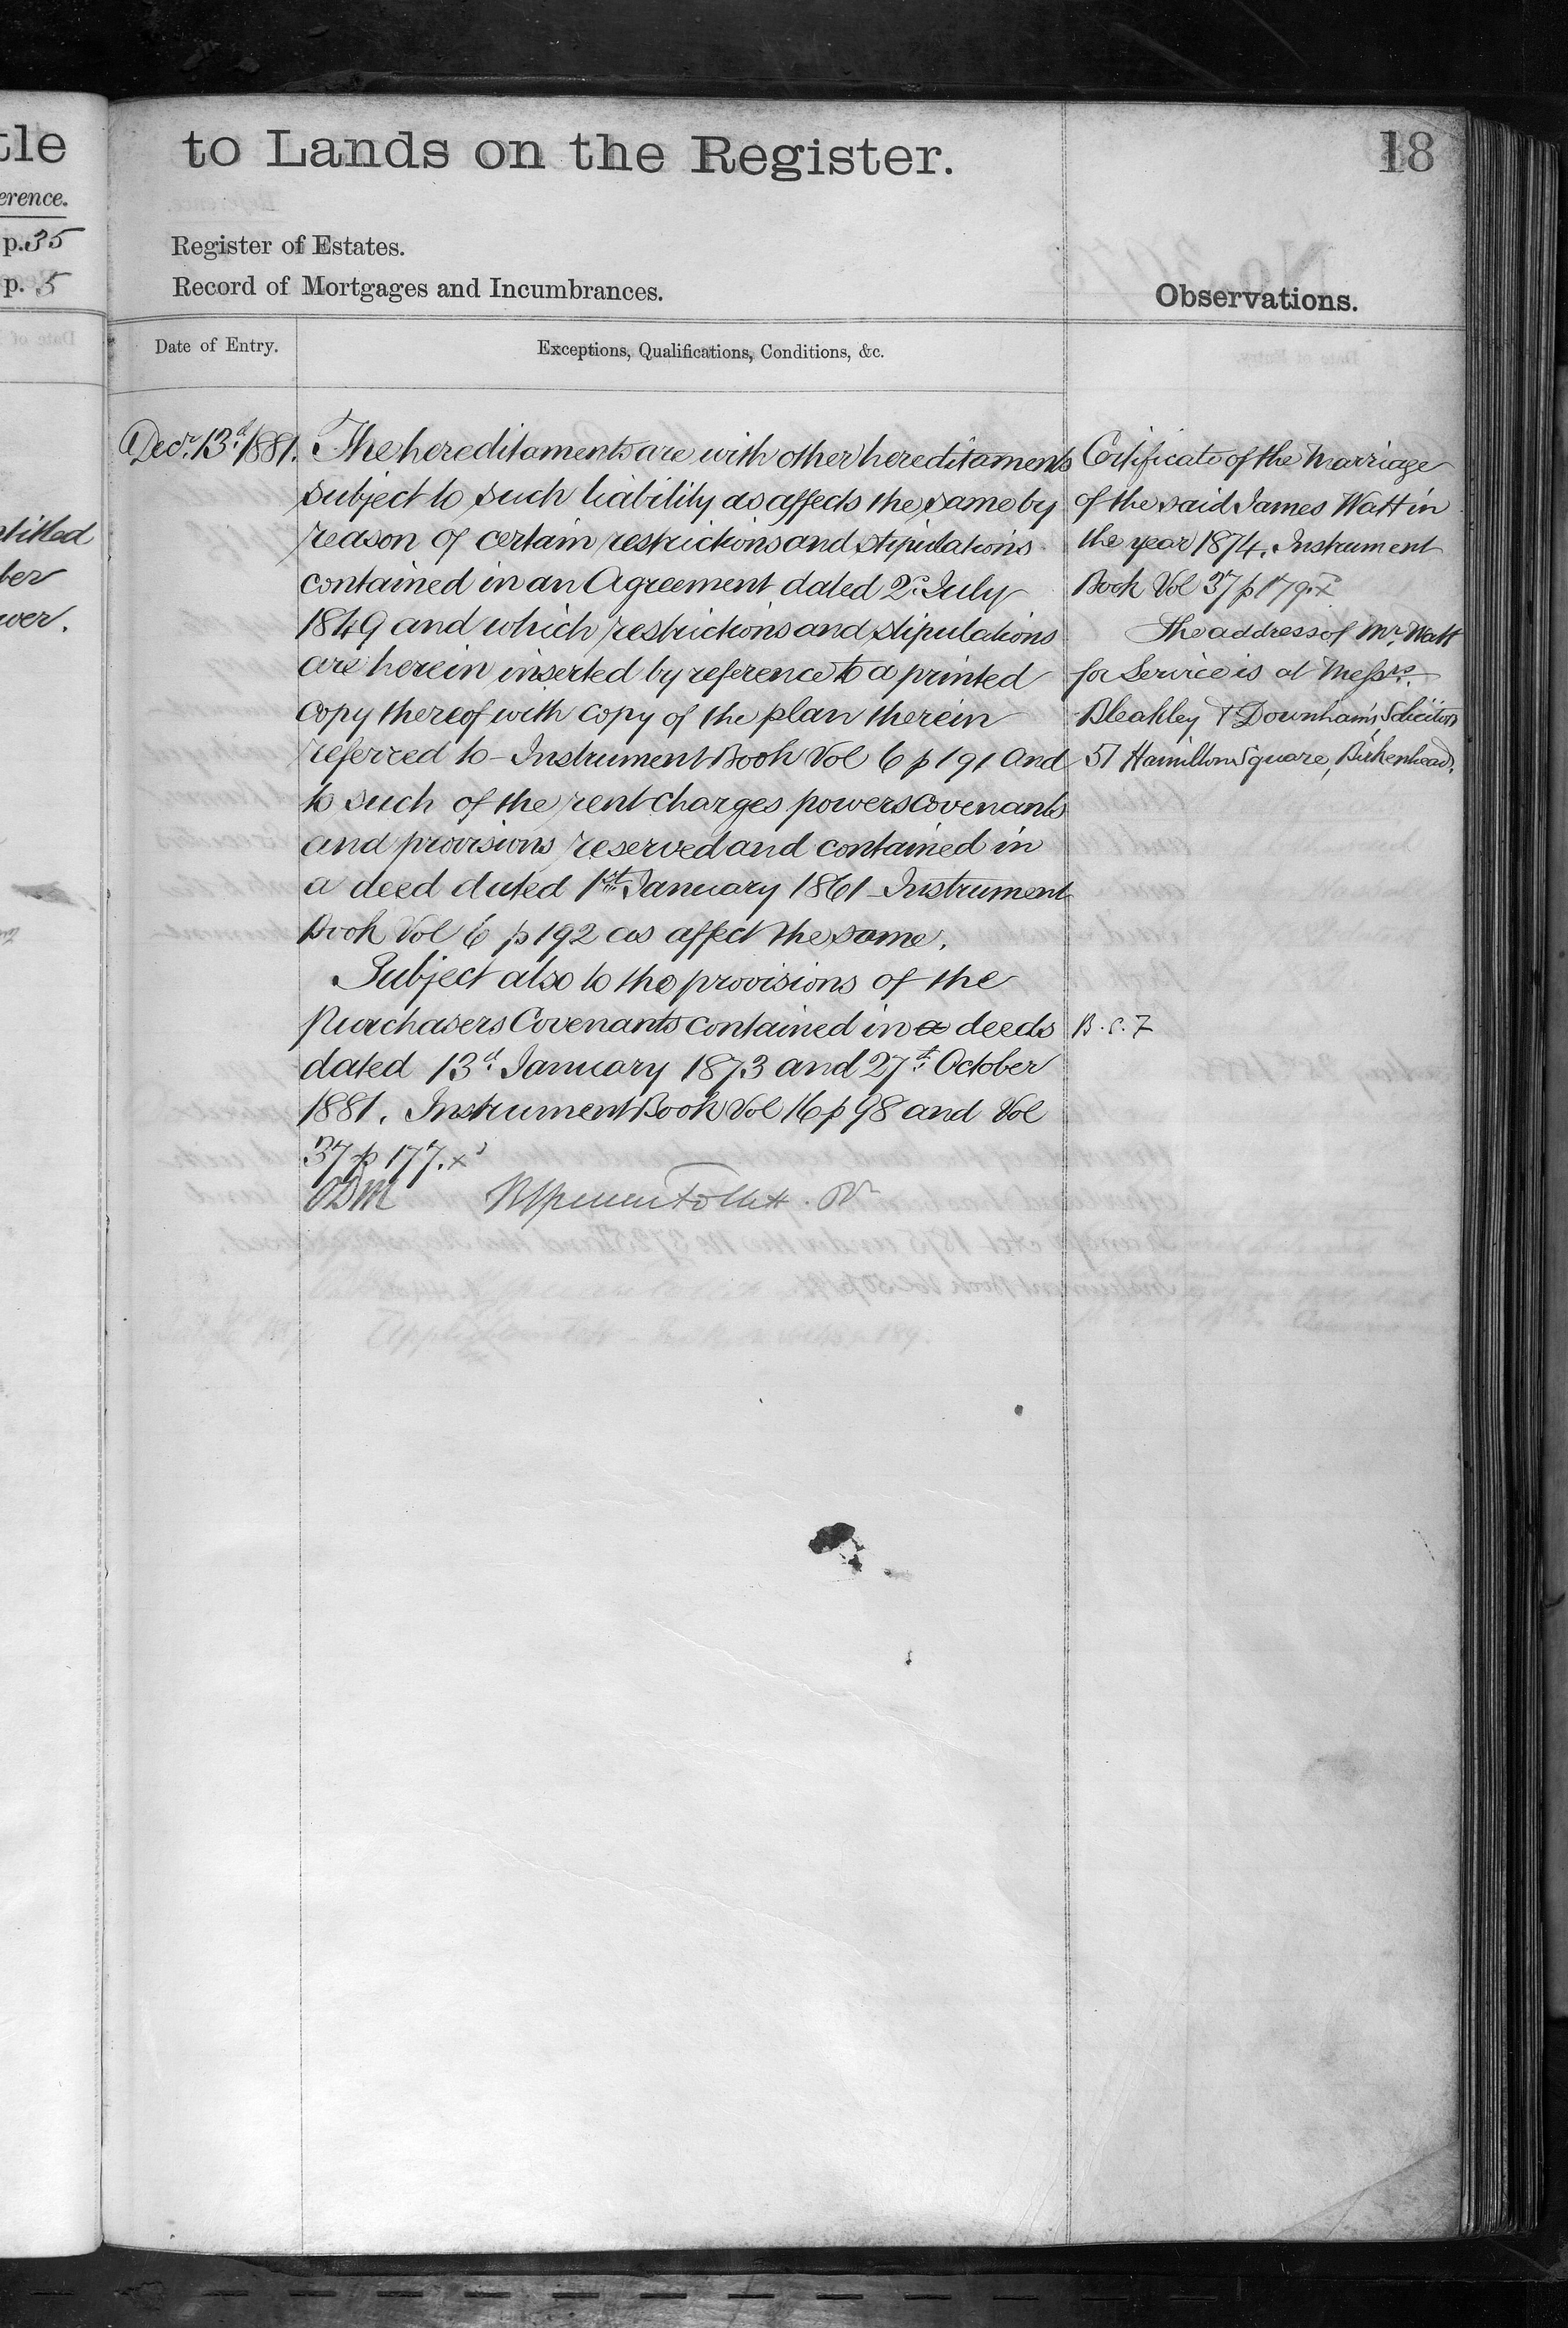 tle
to Lands on the Register.
18
erence.
p.35
p. 5
Register of Estates.
Record of Mortgages and Incumbrances.
Observations.
Date of Entry.
Exceptions, Qualifications, Conditions, &c.
ntitled
ber
wer.
Decr. 13d. 1881.
The hereditaments are with other hereditaments
subject to such liability as affects the same by
reason of certain restrictions and stipulations
contained in an Agreement dated 2d. July
1849 and which restrictions and stipulations
are herein inserted by reference to a printed
copy thereof with copy of the plan therein
referred to - Instrument Book Vol 6 p 191 and
to such of the rent charges powers covenants
and provisions reserved and contained in
a deed dated 1st. January 1861 - Instrument
Book Vol 6 p 192 as affect the same.
Subject also to the provisions of the
Purchasers Covenants contained in a deeds
dated 13d. January 1873 and 27th. October
1881. Instrument Book Vol 16 p 98 and Vol
37 p 177. x
Certificate of the Marriage
of the said James Watt in
the year 1874. Instrument
Book Vol 37 p 179. x
The address of Mr. Watt
for Service is at Messrs.
Bleakley & Downham's Solicitors
51 Hamilton Square, Birkenhead.